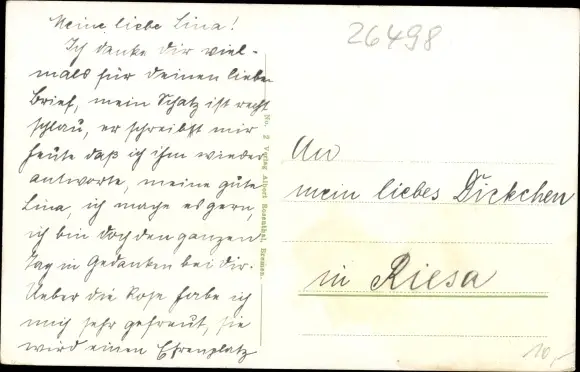 Meine liebe Lina!
Ich danke dir viel-
mals für deinen lieben
Brief, mein Schatz ist recht
schlau, er schreibst mir
heute daß ich ihm wieder
antworte, meine gute
Lina, ich mache es gern,
ich bin doch den ganzen
Tag in Gedanken bei dir.
Ueber die Rose habe ich
mich sehr gefreut, sie
wird einen Ehrenplatz
No. 2 Verlag Albert Rosenthal, Bremen.
26498
An
mein liebes Dickchen
in Riesa
10,-